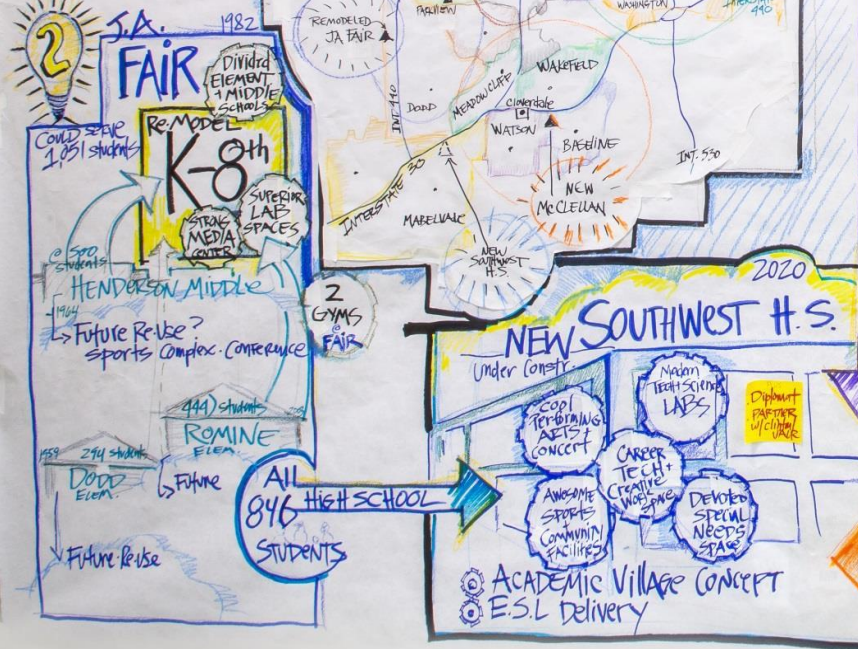 2
J.A.
1982
FAIR
Divided
ELEMENT
+ MIDDLE
SCHOOLS
COULD SERVE
1,051 students
Re:MODEL
K-8th
SUPERIOR
LAB
SPACES
STRONG
MEDIA
CENTER
@ 500
students
HENDERSON MIDDLE
1964
Future Re:Use?
Sports Complex · Conference
2
GYMS
@
FAIR
444 students
ROMINE
ELEM.
1959
294 students
DODD
ELEM.
Future
Future Re·Use
All
846
STUDENTS
HIGH SCHOOL
REMODELED
JA FAIR
PARKVIEW
WASHINGTON
INTERSTATE
440
INT. 440
DODD
MEADOWCLIFF
WAKEFIELD
Cloverdale
WATSON
BASELINE
INT. 530
INTERSTATE 30
MABELVALE
NEW
McCLELLAN
NEW
SOUTHWEST
H.S.
2020
NEW SOUTHWEST H.S.
Under Constr.
Cool
Performing
ARTS +
CONCERT
Modern
TECH + Science
LABS
Diplomat
PARTNER
w/ Clinton/
UALR
CAREER
TECH +
Creative
WORK
SPACE
AWESOME
SPORTS
+
Community
Facilities
DEVOTED
SPECIAL
NEEDS
SPACE
ACADEMIC Village CONCEPT
E.S.L Delivery